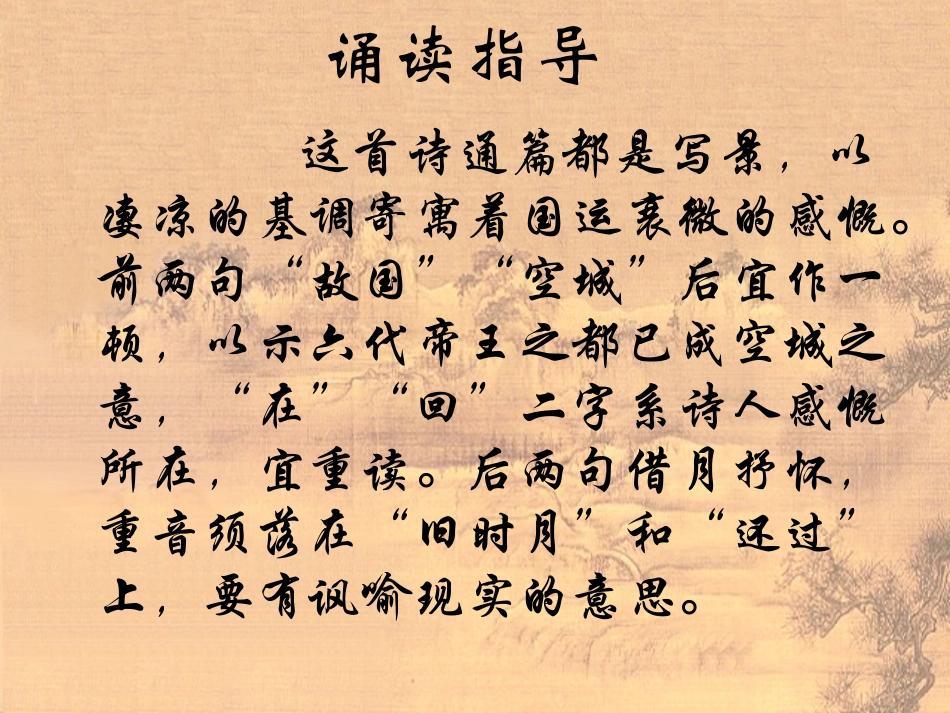 诵读指导
这首诗通篇都是写景，以
凄凉的基调寄寓着国运衰微的感慨。
前两句“故国”“空城”后宜作一
顿，以示六代帝王之都已成空城之
意，“在”“回”二字系诗人感慨
所在，宜重读。后两句借月抒怀，
重音须落在“旧时月”和“还过”
上，要有讽喻现实的意思。